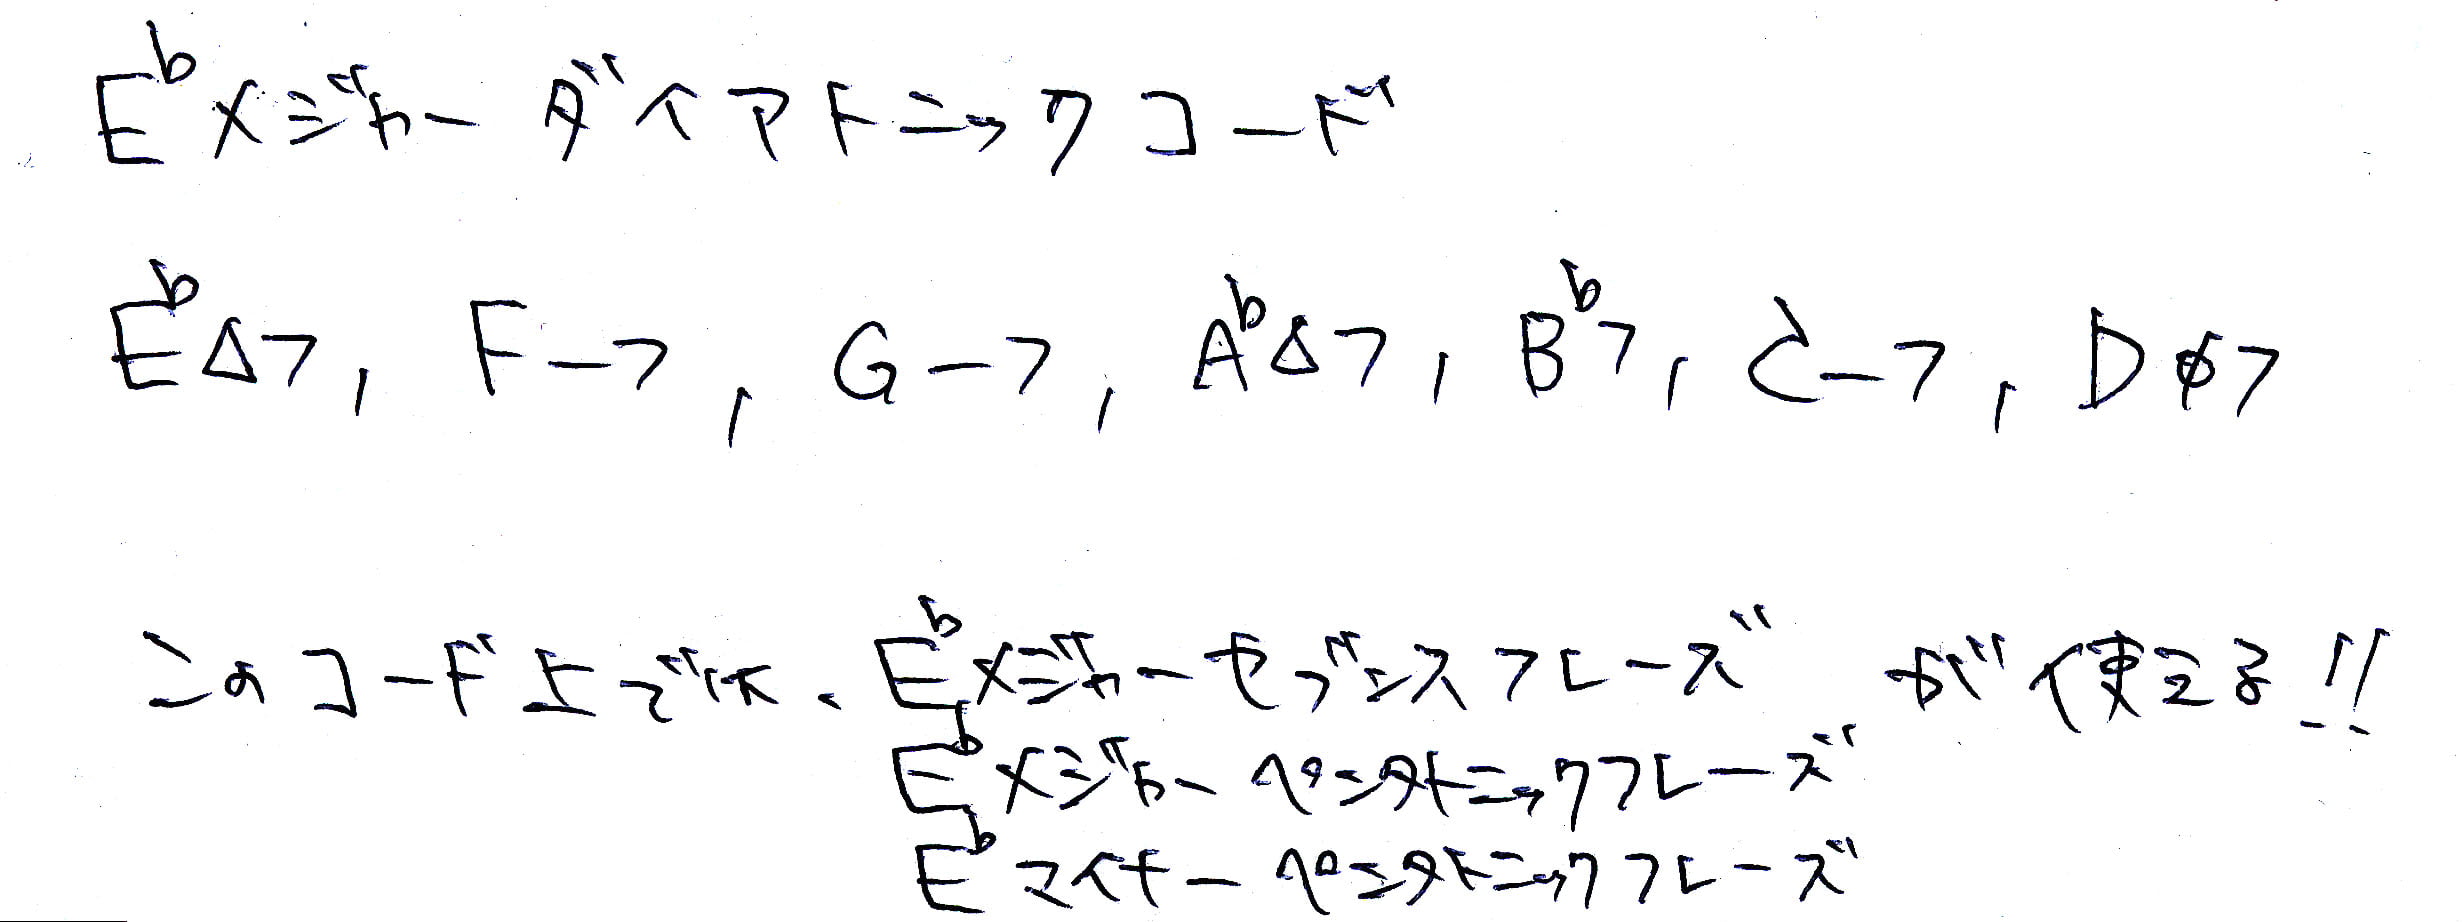 E♭メジャー ダイアトニック コード
E♭△7, F-7, G-7, A♭△7, B♭7, C-7, Dø7
このコード上では、E♭メジャーセブンスフレーズ が使える!!
E♭メジャーペンタトニックフレーズ
E♭マイナーペンタトニックフレーズ